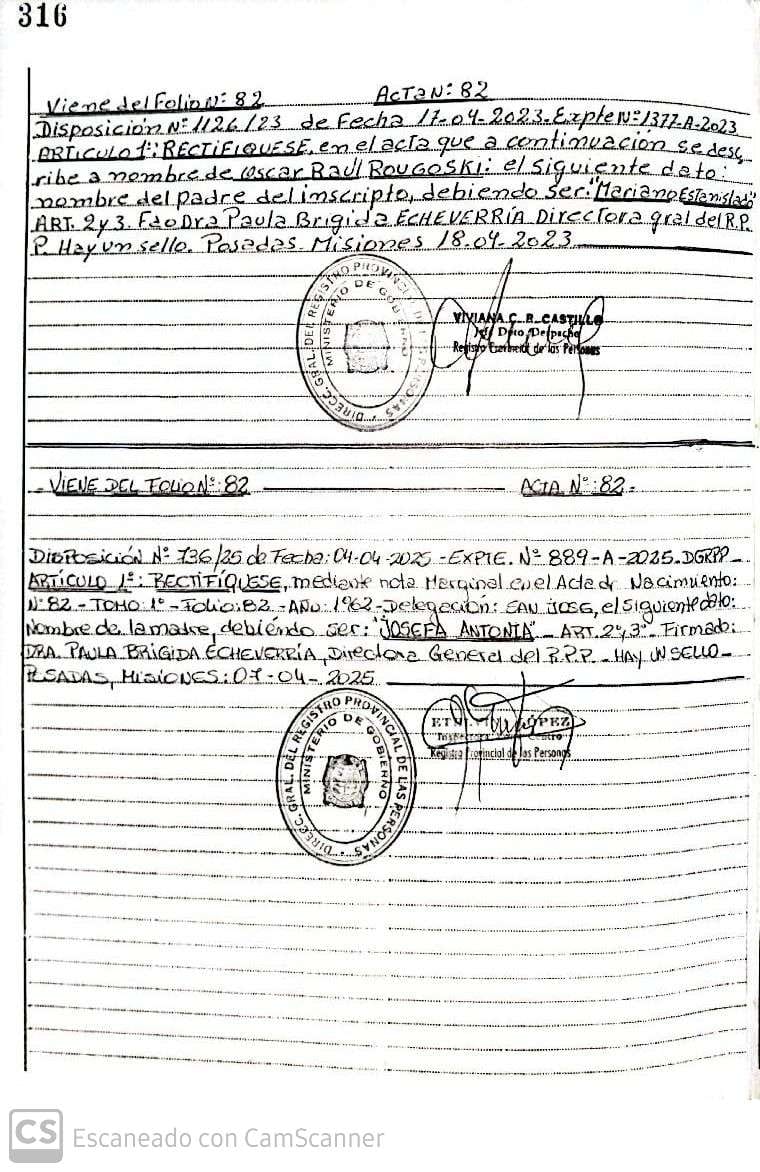 316
Viene del Folio Nº 82 Acta Nº: 82
Disposición Nº 1126/23 de Fecha 17-04-2023-Expte Nº 1377-A-2023
ARTICULO 1º: RECTIFIQUESE, en el acta que a continuación se desc
ribe a nombre de Oscar Raúl ROUGOSKI: el siguiente dato:
nombre del padre del inscripto, debiendo ser: "Mariano Estanislado"
ART. 2 y 3. Fdo Dra Paula Brigida ECHEVERRÍA Directora gral del R.P.
P. Hay un sello. Posadas Misiones 18-04-2023
DIRECC. GRAL. DEL REGISTRO PROVINCIAL DE LAS PERSONAS
MINISTERIO DE GOBIERNO
VIVIANA C. R. CASTILLO
Dpto Despacho
Registro de las Personas
- VIENE DEL FOLIO Nº: 82 ACTA Nº: 82-
DISPOSICIÓN Nº 736/25 de Fecha: 04-04-2025-EXPTE. Nº 889-A-2025. DGRPP-
ARTÍCULO 1º: RECTIFÍQUESE, mediante nota Marginal en el Acta de Nacimiento:
Nº 82 - TOMO 1º - Folio: 82 - AÑO: 1962 - Delegación: SAN JOSE, el siguiente dato:
Nombre de la madre, debiéndo ser: "JOSEFA ANTONIA" - ART. 2º y 3º - Firmado:
DRA. PAULA BRIGIDA ECHEVERRÍA, Directora General del R.P.P. - HAY UN SELLO-
POSADAS, MISIONES: 07-04-2025.
DIRECC. GRAL. DEL REGISTRO PROVINCIAL DE LAS PERSONAS
MINISTERIO DE GOBIERNO
LÓPEZ
Centro
Registro Provincial de las Personas
CS Escaneado con CamScanner